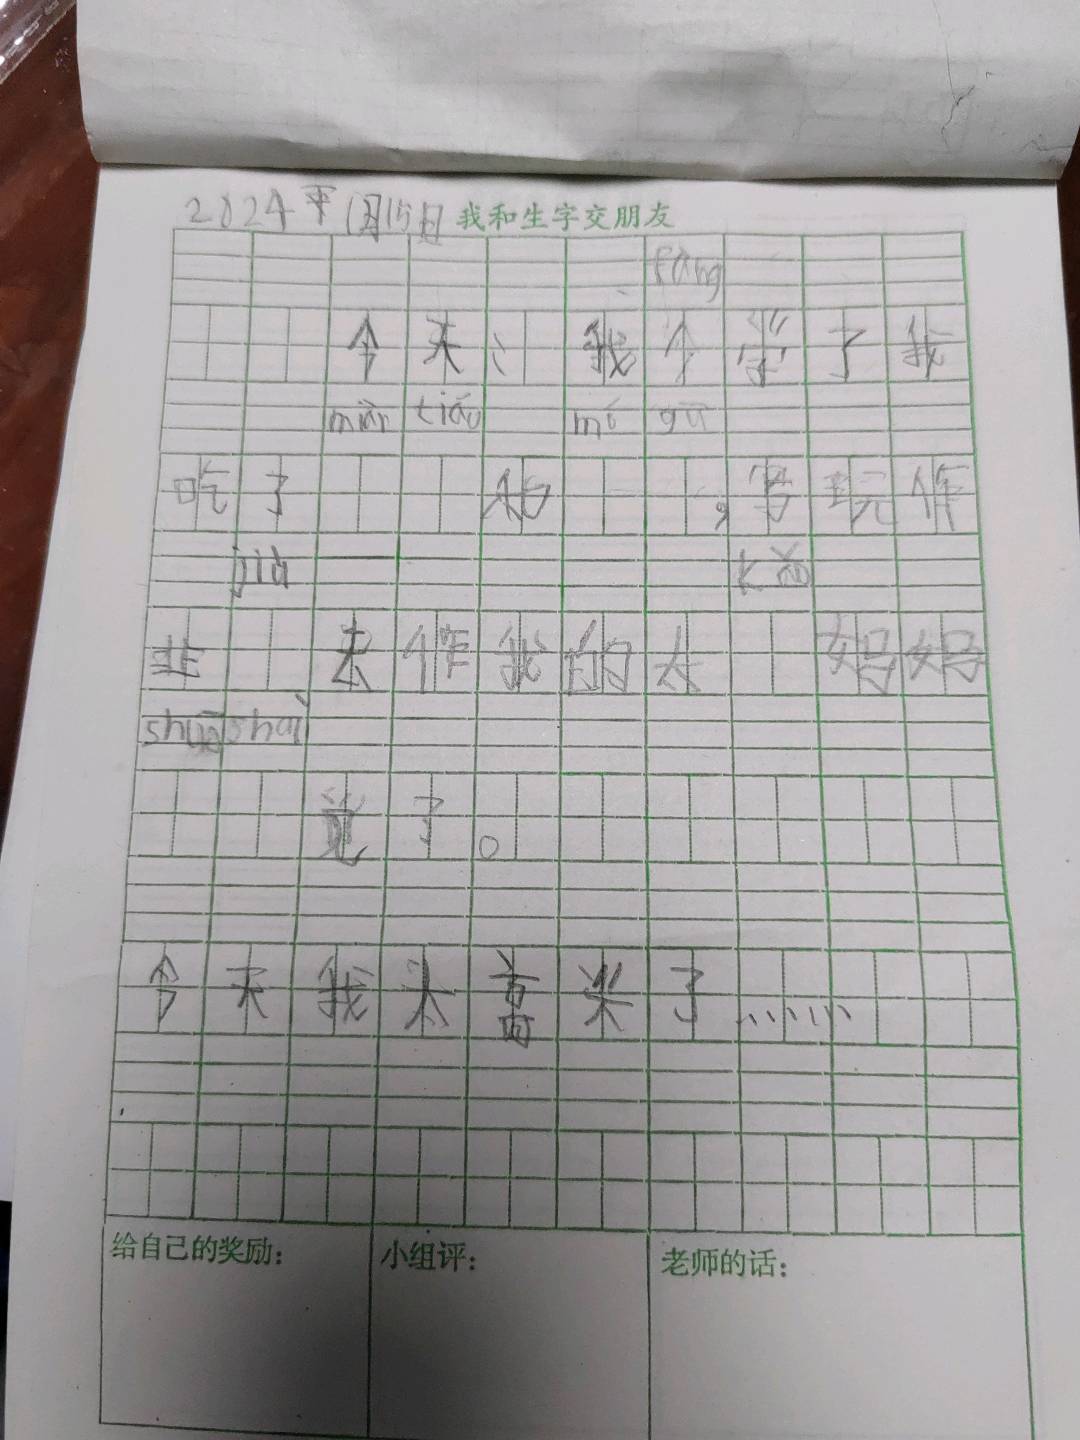 2024年1月15日 我和生字交朋友
fàng
今天,我个学了我
miàn tiáo mó gū
吃了 和 ,写玩作
jiù kǎo
业 去作我的大 妈妈
shuō shai
觉了。
今天我太高兴了……
给自己的奖励: 小组评: 老师的话: